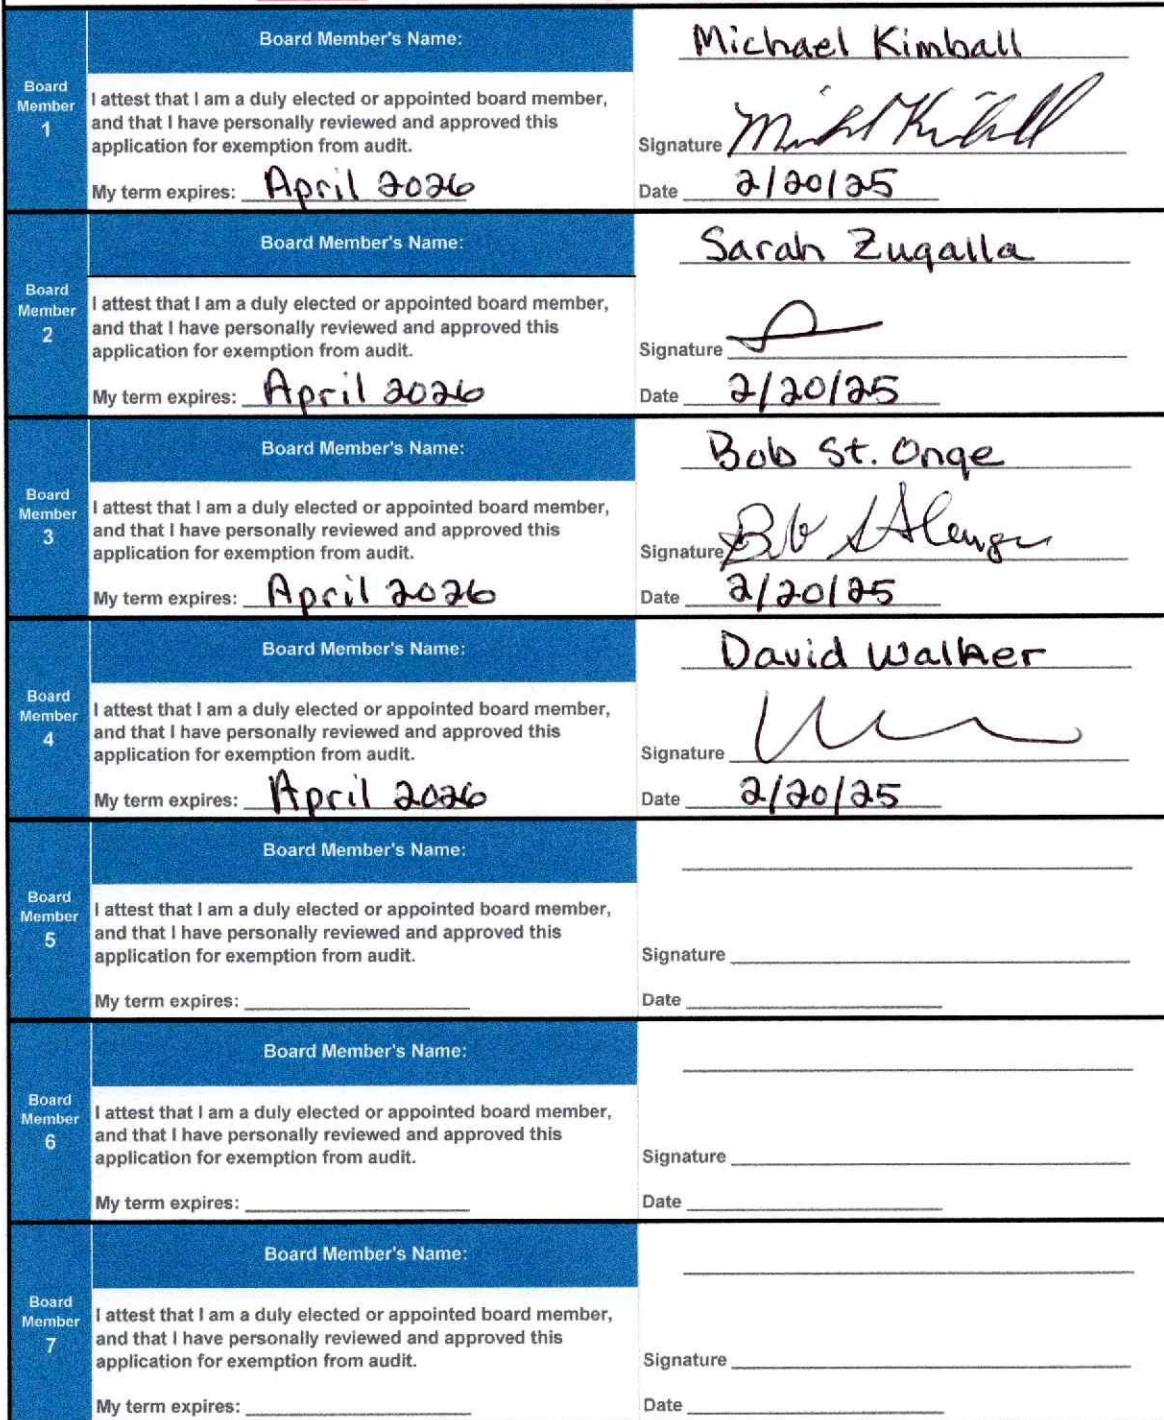 Board Member's Name:
Michael Kimball
Board
Member
1
I attest that I am a duly elected or appointed board member,
and that I have personally reviewed and approved this
application for exemption from audit.
Signature Michael Kimball
My term expires: April 2026
Date 2/20/25
Board Member's Name:
Sarah Zugalla
Board
Member
2
I attest that I am a duly elected or appointed board member,
and that I have personally reviewed and approved this
application for exemption from audit.
Signature
My term expires: April 2026
Date 2/20/25
Board Member's Name:
Bob St. Onge
Board
Member
3
I attest that I am a duly elected or appointed board member,
and that I have personally reviewed and approved this
application for exemption from audit.
Signature Bob St. Onge
My term expires: April 2026
Date 2/20/25
Board Member's Name:
David Walker
Board
Member
4
I attest that I am a duly elected or appointed board member,
and that I have personally reviewed and approved this
application for exemption from audit.
Signature
My term expires: April 2026
Date 2/20/25
Board Member's Name:
Board
Member
5
I attest that I am a duly elected or appointed board member,
and that I have personally reviewed and approved this
application for exemption from audit.
Signature
My term expires:
Date
Board Member's Name:
Board
Member
6
I attest that I am a duly elected or appointed board member,
and that I have personally reviewed and approved this
application for exemption from audit.
Signature
My term expires:
Date
Board Member's Name:
Board
Member
7
I attest that I am a duly elected or appointed board member,
and that I have personally reviewed and approved this
application for exemption from audit.
Signature
My term expires:
Date